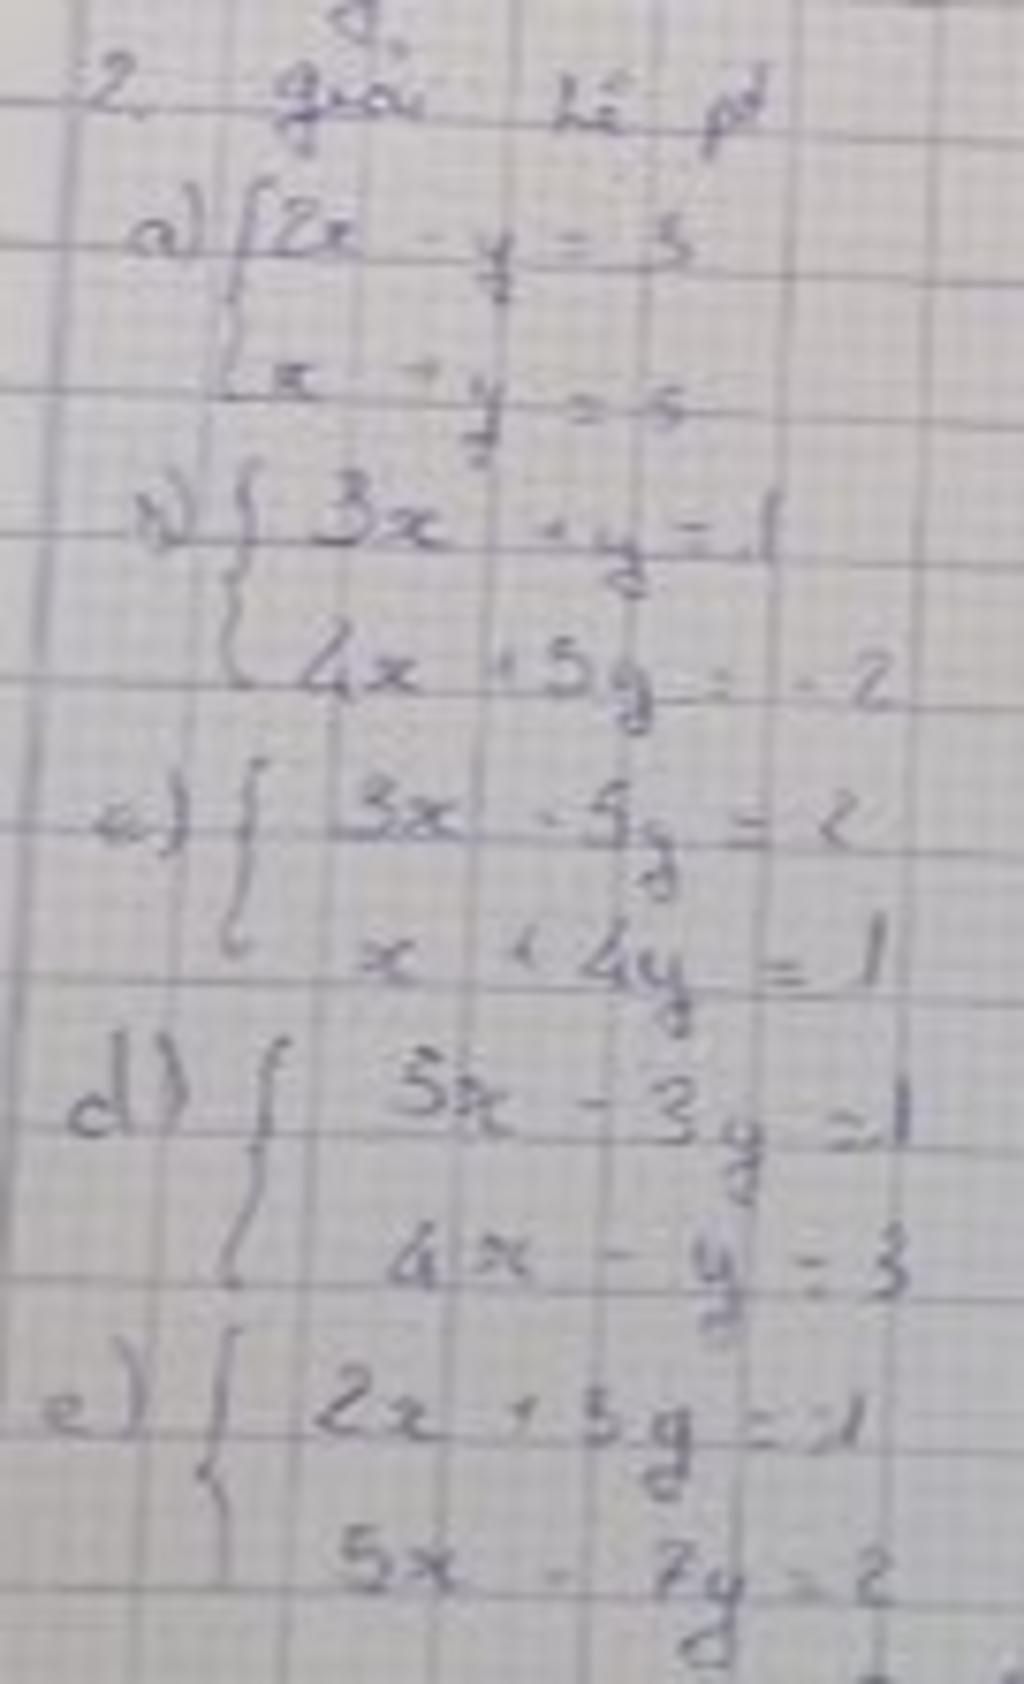 2. giải hệ pt
a) { 2x - y = 3
x + y = 5
b) { 3x + y = 1
4x + 5y = -2
c) { 3x - 5y = 2
x + 4y = 1
d) { 5x - 3y = 1
4x - y = 3
e) { 2x + 3y = 1
5x - 7y = 2